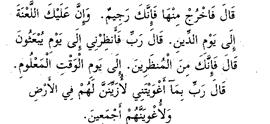 قَالَ فَاخْرُجْ مِنْهَا فَإِنَّكَ رَجِيمٌ. وَإِنَّ عَلَيْكَ اللَّعْنَةَ
إِلَى يَوْمِ الدِّينِ. قَالَ رَبِّ فَأَنظِرْنِي إِلَى يَوْمِ يُبْعَثُونَ
قَالَ فَإِنَّكَ مِنَ الْمُنظَرِينَ. إِلَى يَوْمِ الْوَقْتِ الْمَعْلُومِ.
قَالَ رَبِّ بِمَآ أَغْوَيْتَنِي لَأُزَيِّنَنَّ لَهُمْ فِي الْأَرْضِ
وَلَأُغْوِيَنَّهُمْ أَجْمَعِينَ.